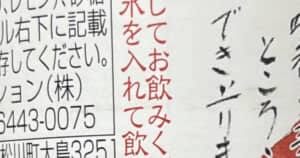 ところ
でき立りま
してお飲みく
氷を入れて飲
ル右下に記載
存してください。
ション(株)
6443-0075
松川町大島3251